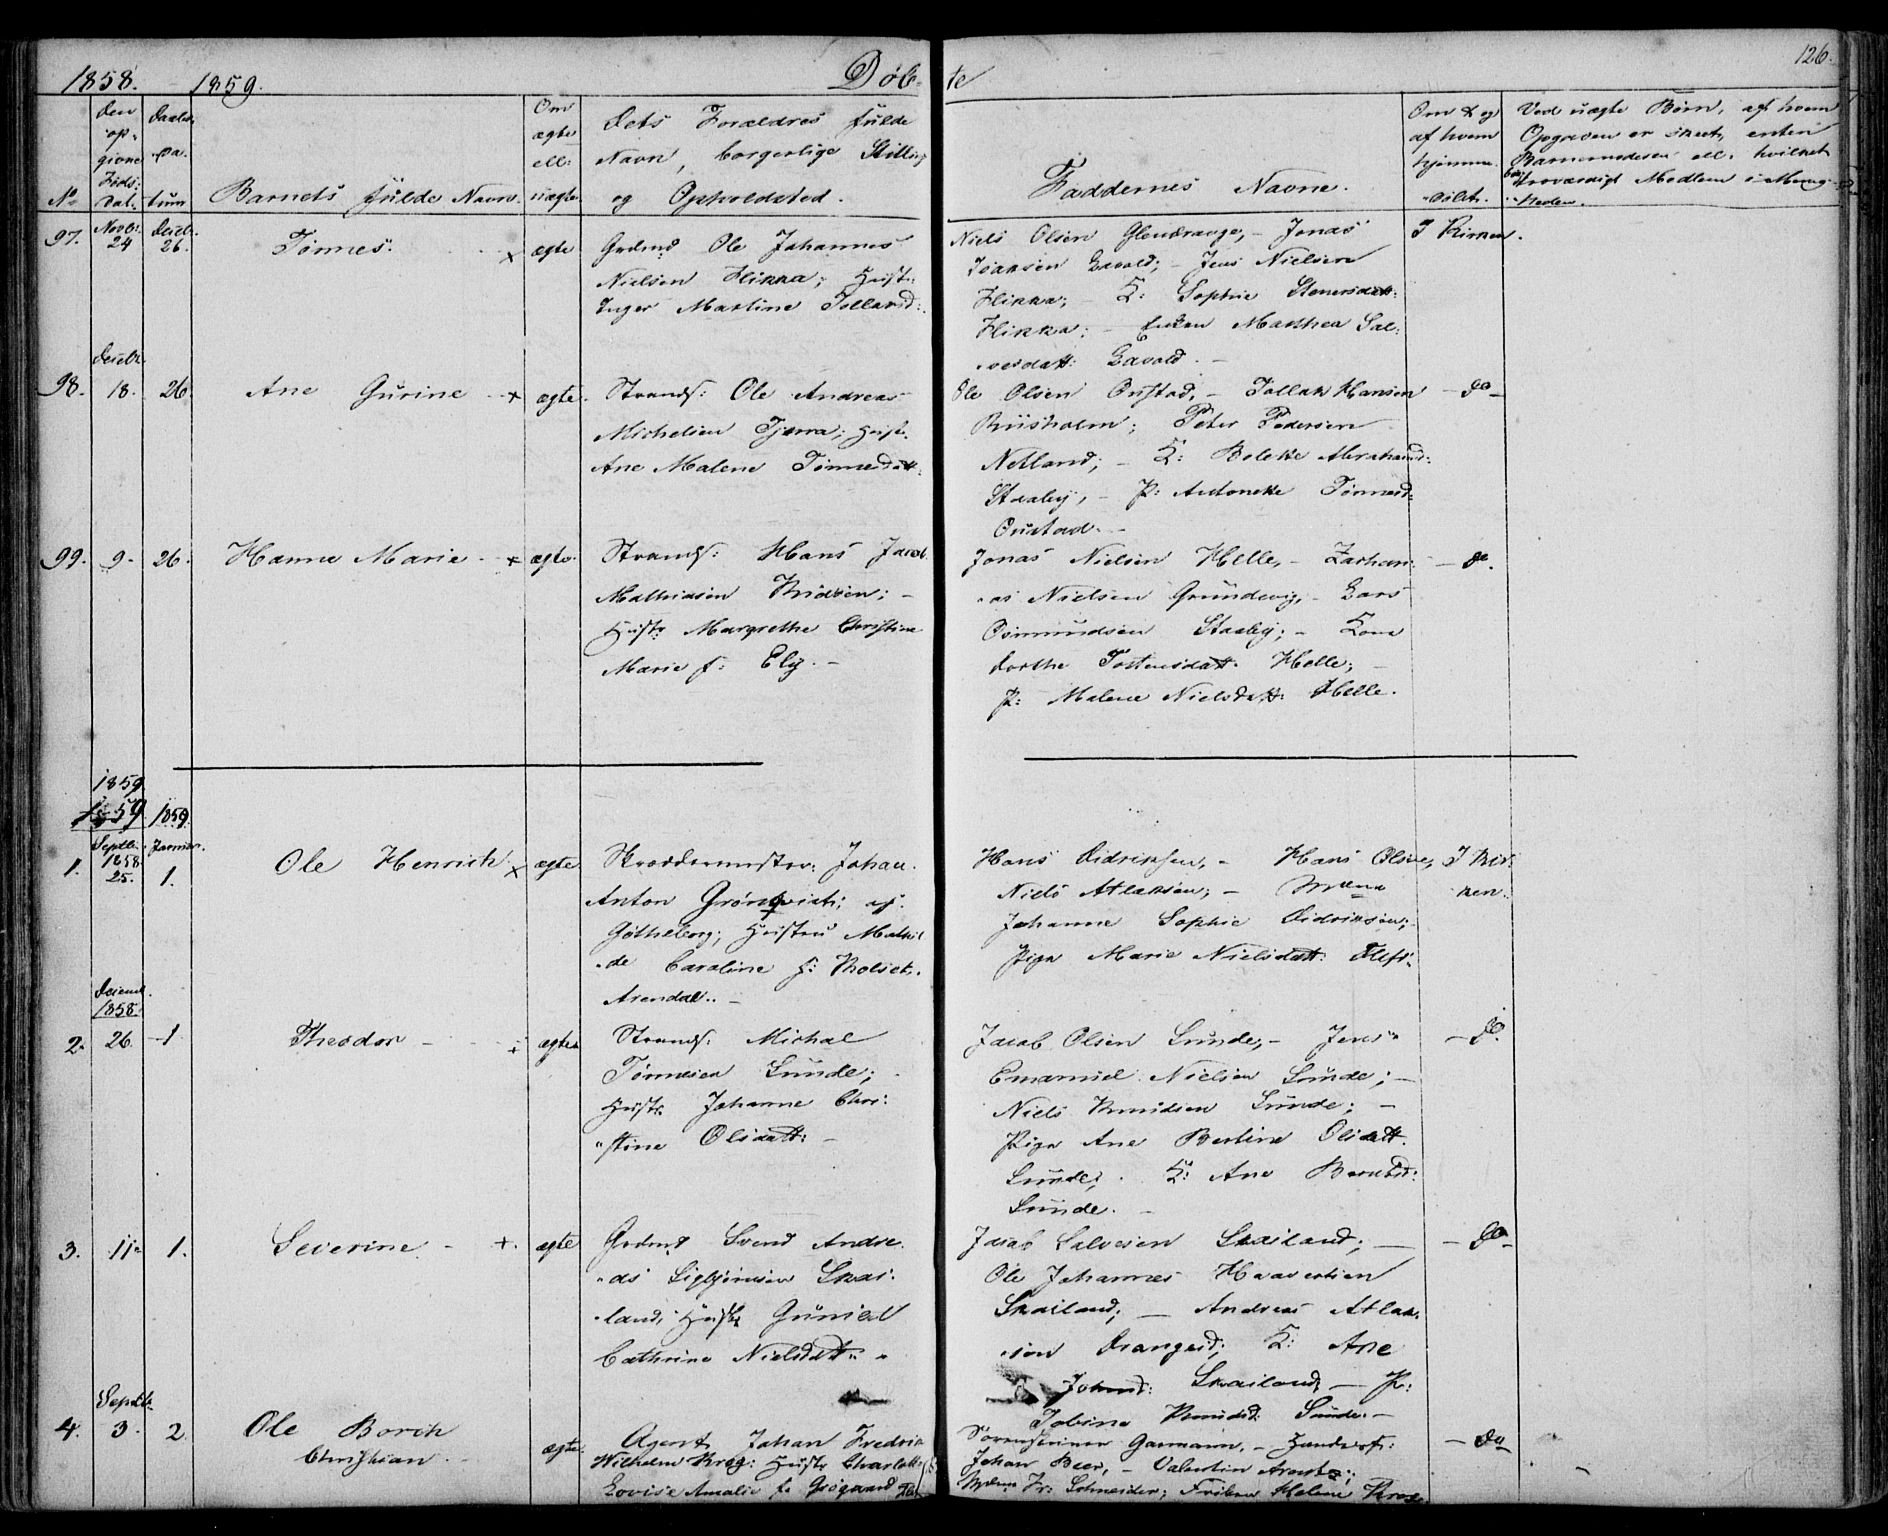 1858. 1859. Døb-te 126.
No
Den opgivne Føds: Dat.
Daabsdatum
Barnets fulde Navn.
Om ægte ell: uægte
Dets Forældres fulde
Navn, borgerlige Stilling
og Opholdsted.
Faddernes Navne.
Om & og
af hvem
hjemmedøbt.
Ved uægte Børn, af hvem
Opgaven er skeet, enten
Barnemoderen ell: hvilket
troværdigt Medlem i Menigheden.
97. Novbr. 24 Decbr. 26. Tønnes. x ægte
Grdmd Ole Johannes
Nielsen Flikka; Hustr:
Inger Martine Tollaksd:
Niels Olsen Glendrange, - Jonas
Isaksen Eavold; - Jens Nielsen
Flikka; - K: Sophie Stenersdatt:
Flikka; - Enken Marthea Sal-
vesdatt: Eavold. -
I Kirken.
98. Decbr. 18. 26. Ane Gurine - x ægte.
Strands: Ole Andreas
Michelsen Tjørra; Hustr.
Ane Malene Tønnesdatt:
Ole Olsen Onstad, - Tollak Hansen
Briisholm; Peter Pedersen
Netland; - K: Bolette Abrahamsd:
Staaley, - P: Antonette Tønnesd:
Onstad. -
- do -
99. 9. 26. Hanna Marie - x ægte.
Strands: Hans Jacob
Mathiasen Knidsen; -
Hustr: Margrethe Christine
Marie f: Ely. -
Jonas Nielsen Helle, - Zachari-
as Nielsen Grundevig, - Lars
Osmundsen Staaley; - Kone
Dorthe Tostensdatt. Helle; -
P: Malene Nielsdatt: Helle.
- do.
1859
1859 1859.
1. Septbr: 1858 25. Januar. 1. Ole Henrich x ægte
Skræddermester: Johan
Anton Grønqvist: af
Gøtheborg; Hustru Mathil-
de Caroline f: Holset.
Arendal. -
Hans Didriksen, - Hans Olsen,
Niels Atlaksen; - Mdm
Johanne Sophie Didriksen;
Pige Marie Nielsdatt: Flefs.
I Kirken.
2. Decemb. 1858. 26. 1 Theodor - x ægte
Strands: Michal
Tønnesen Lunde; -
Hustr Johanne Chri-
stine Olsdatt: -
Jacob Olsen Lunde, - Jens
Emanuel Nielsen Lunde; -
Niels Knudsen Lunde; -
Pige Ane Bertine Olsdatt.
Lunde; K: Ane Berntsd:
Lunde. -
- do.
3. 11. 1. Severine. - x. ægte
Grdmd Svend Andre-
as Sigbjørnsen Skai-
land; Hustr Gunild
Cathrine Nielsdatt: -
Jacob Salvesen Skailand; -
Ole Johannes Haavorsen
Skailand; - Andreas Atlak-
sen Drangeid; K: Ane
Johnsd: Skailand, - P:
Tobine Knudsd: Lunde. -
- do -
4. Septbr. 3. 2. Ole Borch
Christian. - ægte.
Agent Johan Fredrik
Wilhelm Krog: Hustr Charlotte
Lovise Amalie f. Grøgaard
Sorenskriver Garmann, -
Johan Beer, - Valentin
Mdm Fr: Schneider; Frøken Helene Krog
- do -